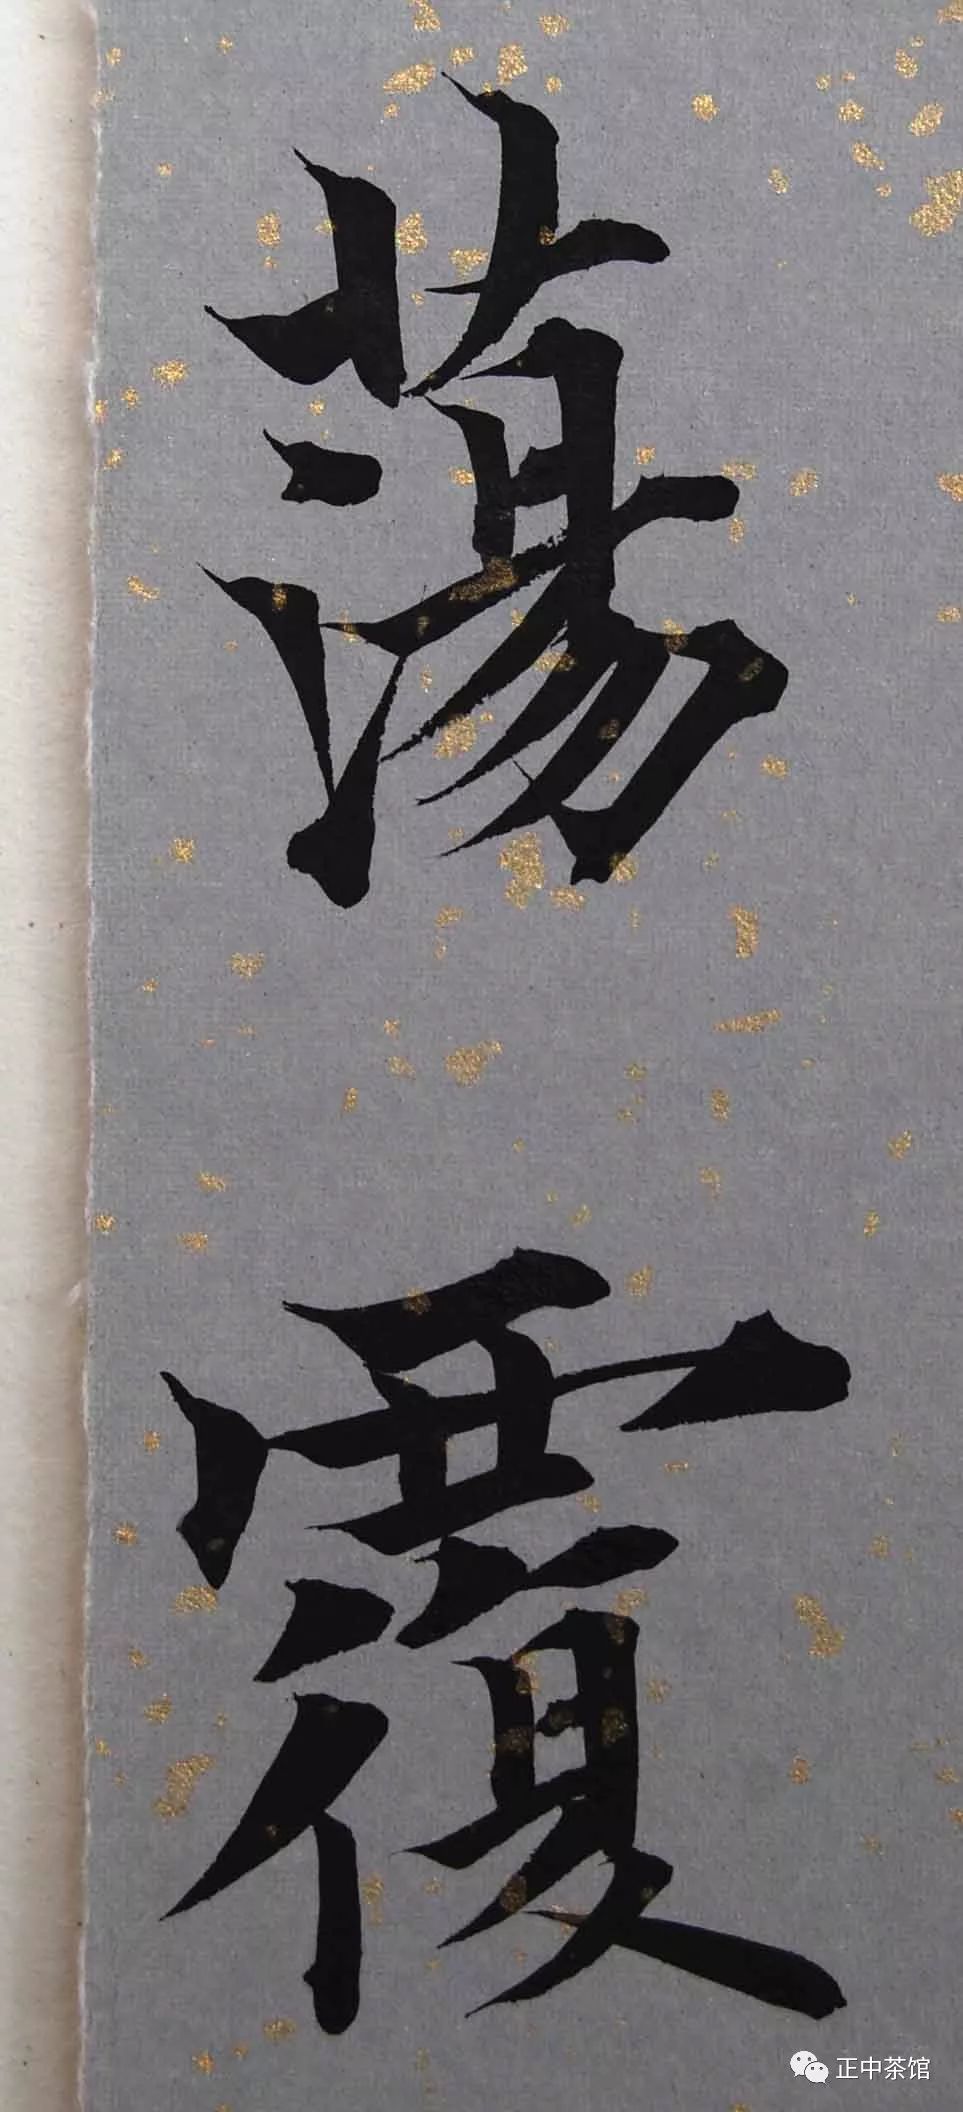 蕩
覆
正中茶馆